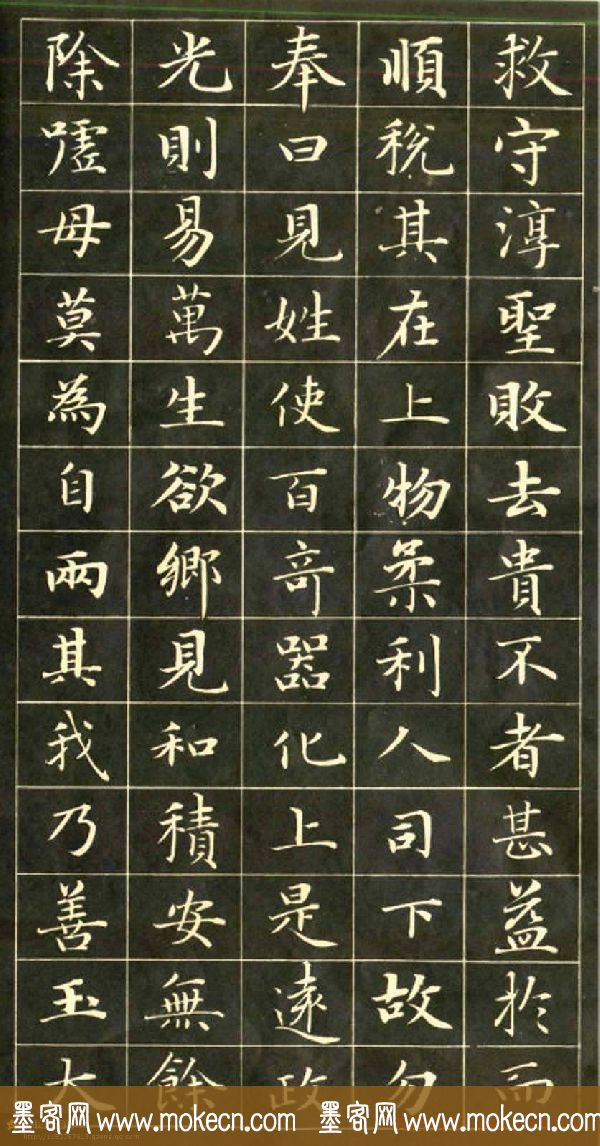 救守淳聖敗去貴不者甚益於而
順稅其在上物柔利人司下故勿
奉曰見姓使百奇器化上是遠政
光則易萬生欲鄉見和積安無餘
除嘘母莫為自兩其我乃善玉大
墨客网 www.mokecn.com 墨客网 www.mokecn.com